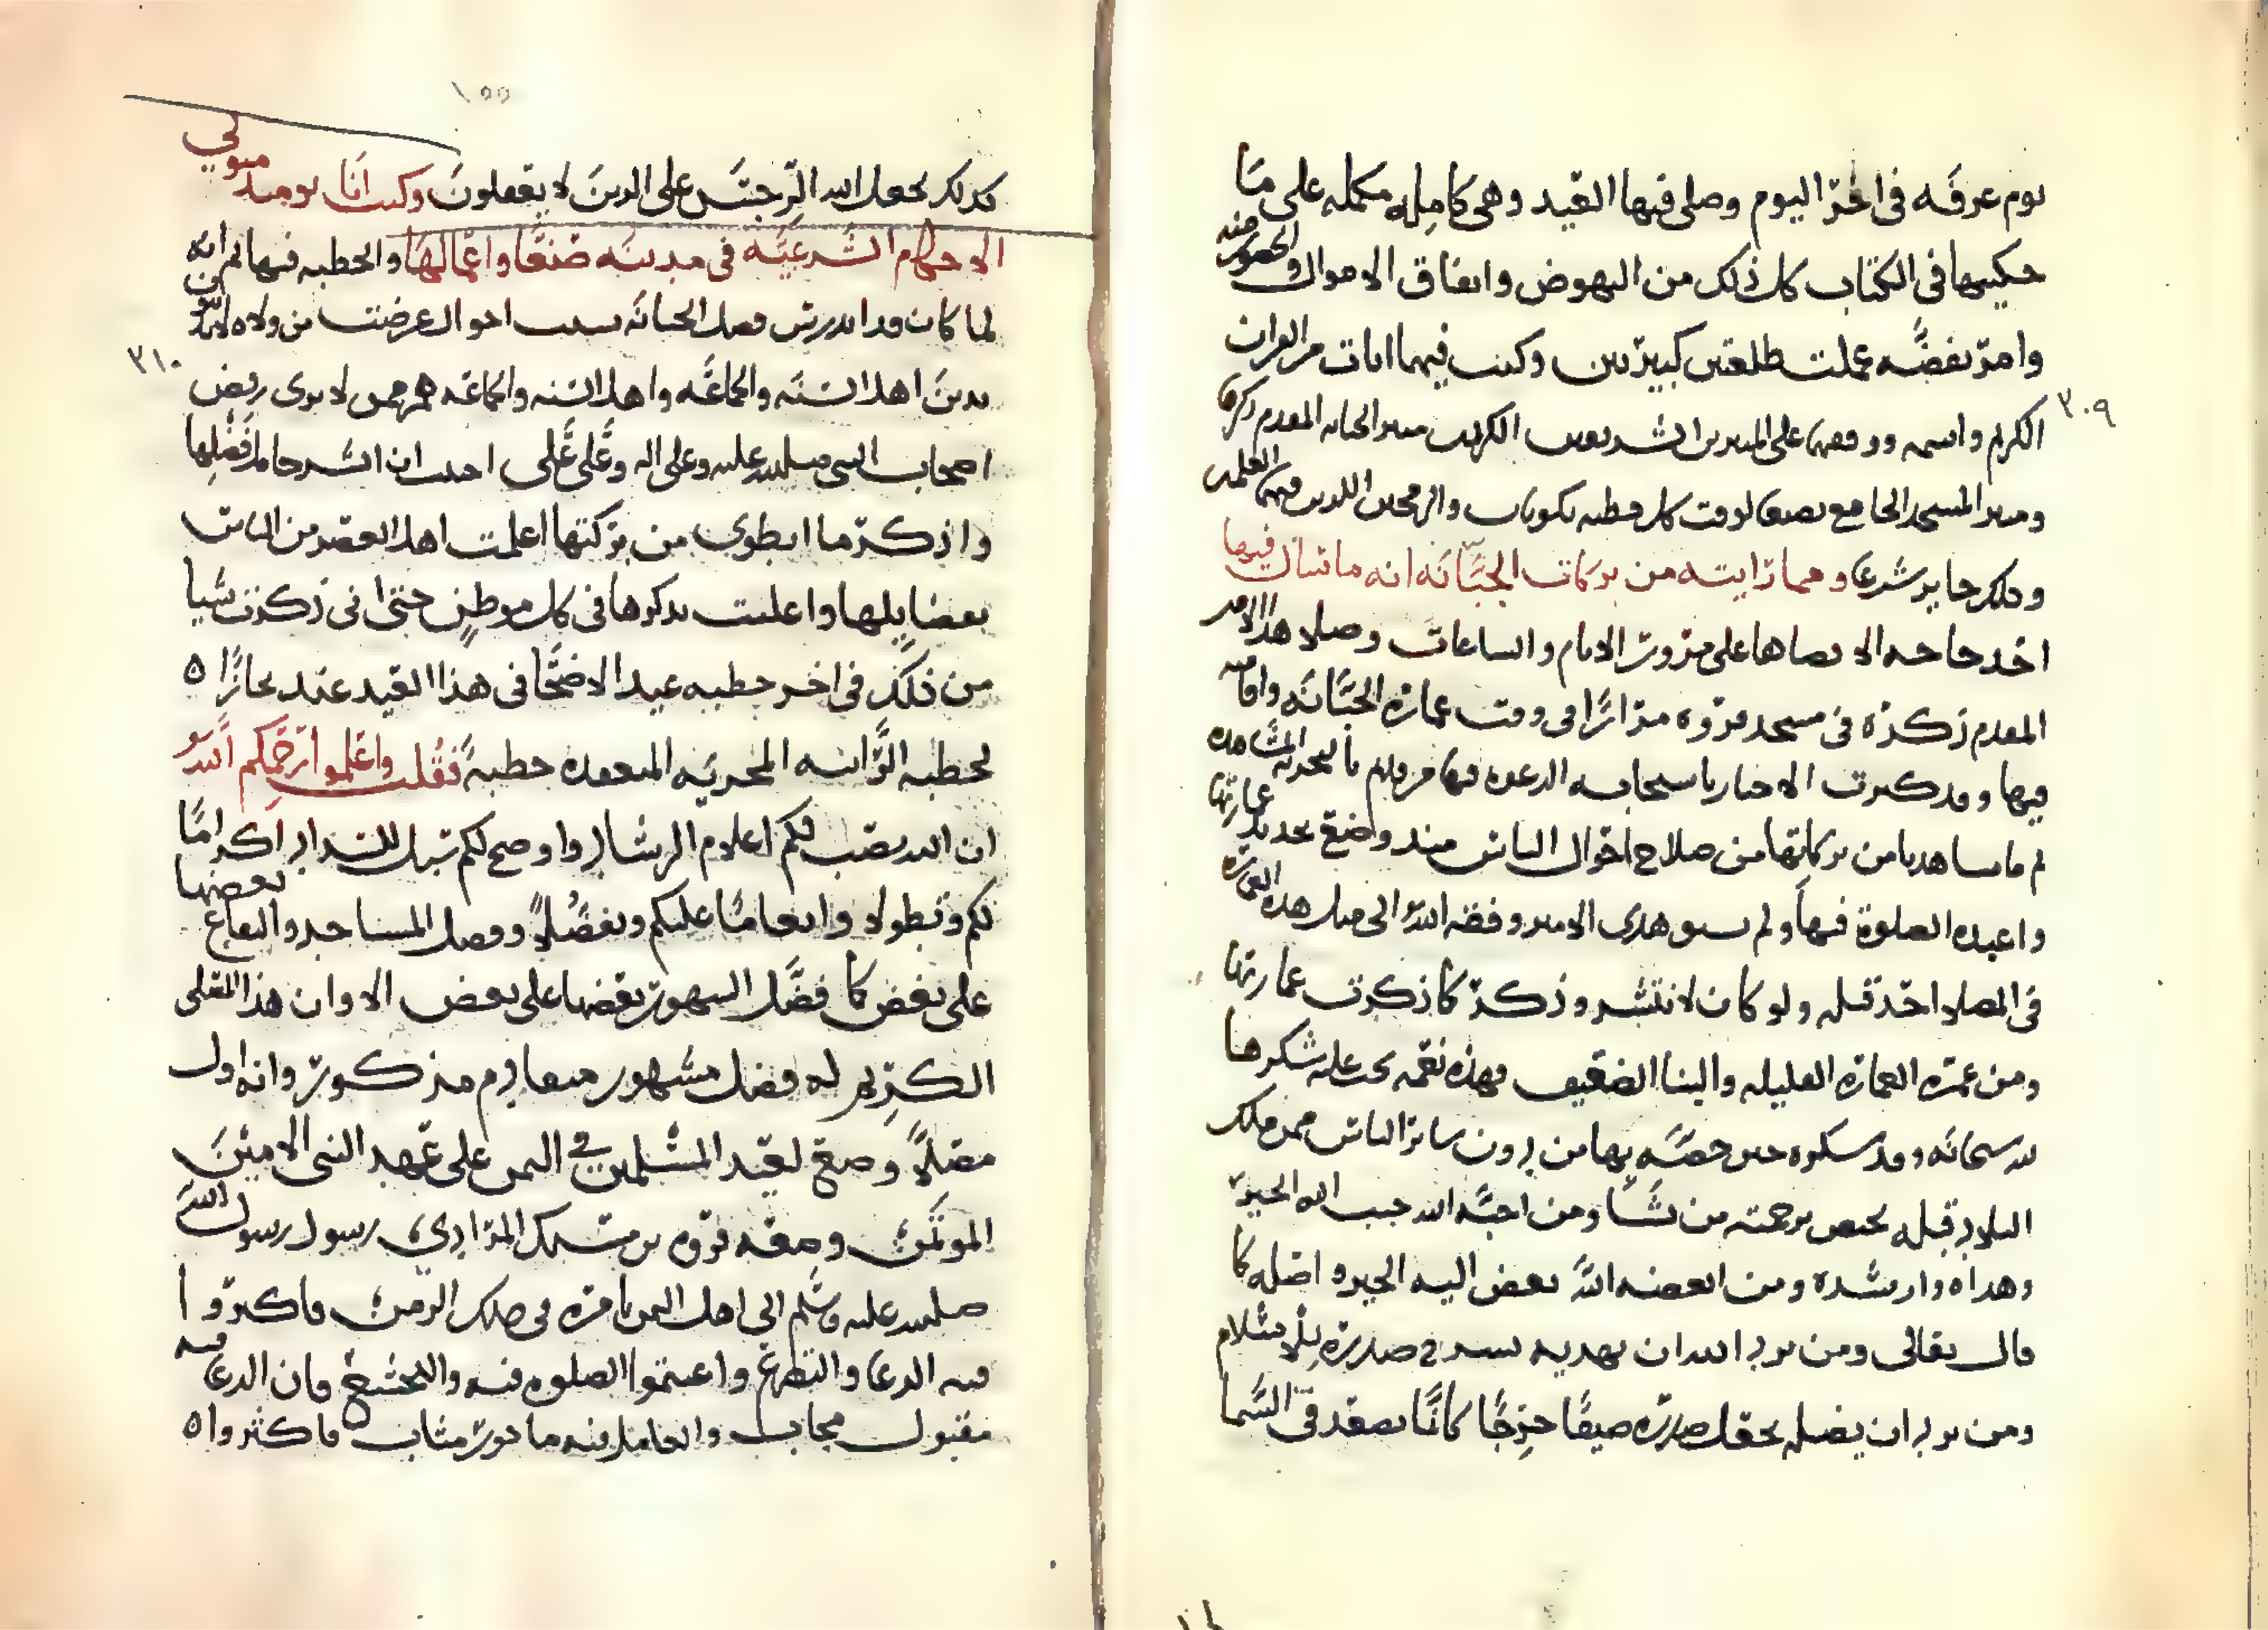 يوم عرفه في اخر اليوم وصلى فيها العيد وهي كامله مكمله على ما
حكيتها في الكتاب كل ذلك من النهوض وانفاق الاموال والحصور منه
وامر بفضه عملت طلعتين كبيرتين وكتب فيهما ايات من القران
الكريم واسمه ووقفهما على المنبرين الشريفين الكريمين منبر الجبانه المقدم ذكره
٣٠٩
ومنبر المسجد الجامع بصنعا لوقت كل خطبه يكونان والرمحين اللذين فيهما العلمين
وذلك جايز شرعا ومما رايته من بركات الجبانه انه ما سال فيها
احد حاجه الا قضاها على مرور الايام والساعات وصلا هذا الامير
المقدم ذكره في مسجد فروه مرارا في وقت عماره الجبانه واقامته
فيها وقد كثرت الاخبار باستجابه الدعوه فيها
ثم ما شاهدنا من بركاتها من صلاح احوال الناس منذ وضع تجديد عمارتها
واعيده الصلوة فيها ولم يسبق هذي الامير وفقه الله الى مثل هذه العماره
في المصلا احد قبله ولو كان لانتشر وذكر كما ذكرت عمارتها
ومن عمره العماره القليله والبنا الضعيف فهذه نعمه يجب عليه شكرها
لله سبحانه وقد شكره حين خصه بها من دون سائر الناس ممن ملك
البلاد قبله يختص برحمته من يشا ومن احبه الله حبب اليه الخير
وهداه وارشده ومن ابغضه الله بغض اليه الخير واضله كما
قال تعالى ومن يرد الله ان يهديه يشرح صدره للاسلام
ومن يرد ان يضله يجعل صدره ضيقا حرجا كانما يصعد في السما
١٥٥
كذلك يجعل الله الرجس على الذين لا يعقلون وكنت انا يوميذ متولي
الاحكام الشرعيه في مدينه صنعا واعمالها والخطبه فيها ثم انه
لما كان قد اندرس فضل الجبانه بسبب احوال عرضت من ولاه لا يرون
٣١٠
بدين اهل السنه والجماعه واهل السنه والجماعه هم ممن لا يرى رفض
اصحاب النبي صلى الله عليه وعلى اله وعلى علي احببت ان اشرح امر فضلها
واذكر ما انطوى من بركتها اعلمت اهل العصر من الناس
بفضايلها واعلنت بذكرها في كل موطن حتى اني ذكرت شيا
من ذلك في اخر خطبه عيد الاضحا في هذا العيد عند
لخطبه الراتبه المحريه المنعقده خطبة فقلت واعلموا رحمكم الله
ان الله نصب لكم اعلام الرشاد واوضح لكم سبل السداد اكراما
لكم وتطولا وانعاما عليكم وتفضلا وفضل المساجد والبقاع بعضها
على بعض كما فضل الشهور بعضها على بعض الا وان هذا المصلى
الكريم له فضل مشهور متعادم مذكور وانه اول
مصلا وضع لعيد المسلمين في اليمن على عهد النبي الامين
الموتمن وضعه فروه بن مسيك المرادي رسول رسول الله
صلى الله عليه وسلم الى اهل اليمن بامره في ذلك الزمن فاكثروا
فيه الدعا والتضرع واغتنموا الصلوه فيه والتخشع فان الدعا فيه
مقبول مجاب والعامل فيه ماجور مثاب فاكثروا ٥